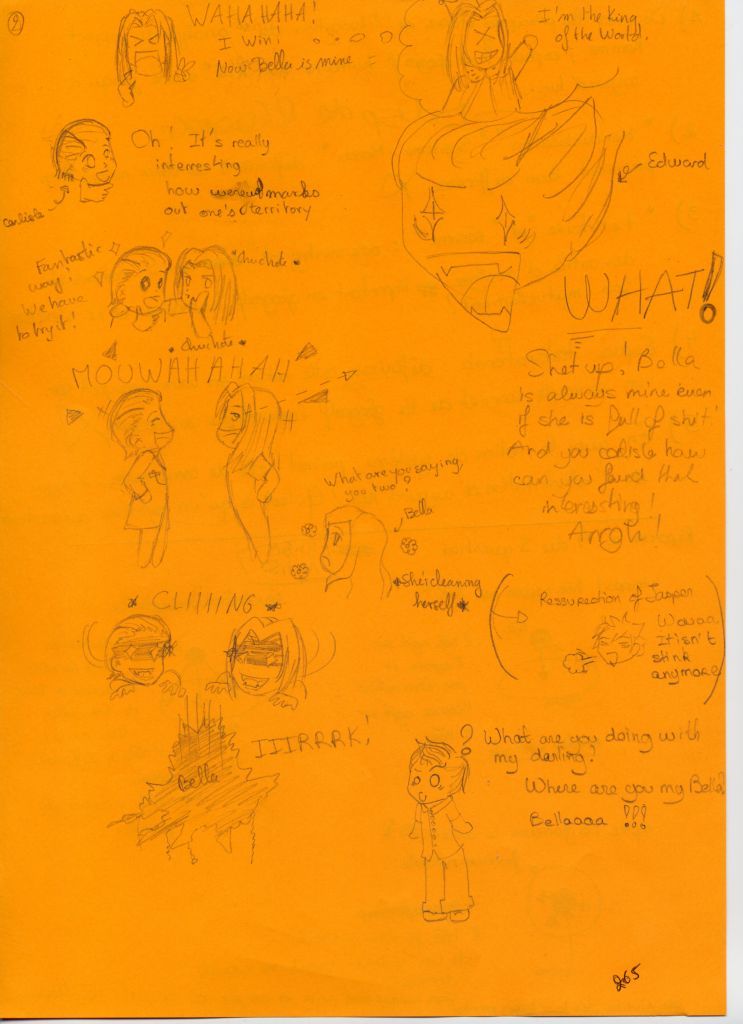 9
WAHA HAHA!
I Win!
Now Bella is mine
I'm the King
of the World.
Oh! It's really
interresting
how marks
out one's territory
Carlisle
Edward
Fantastic
way!
We have
to try it!
*Chuchote*
*Chuchote*
WHAT!
MOUWAHAHAHAH
Shet up! Bella
Is always mine even
if she is full of shit!
And you carlisle how
can you found that
interesting!
Arrgh!
What are you saying
you two?
Bella
*She'cleaning
herself*
*CLIIIING*
Ressurection of Jasper
Wouaa
It isn't
stink
anymore
IIIRRRK!
Bella
?
What are you doing with
my darling?
Where are you my Bella?
Bellaaaa !!!